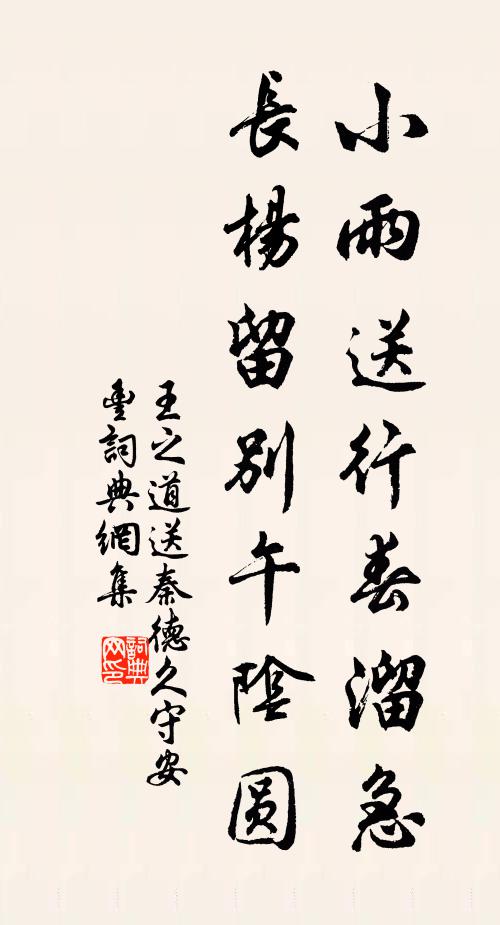 小雨送行春溜急
長楊留別午陰圓
王之道送秦德久守安
豐詞典網集
詞典
網印